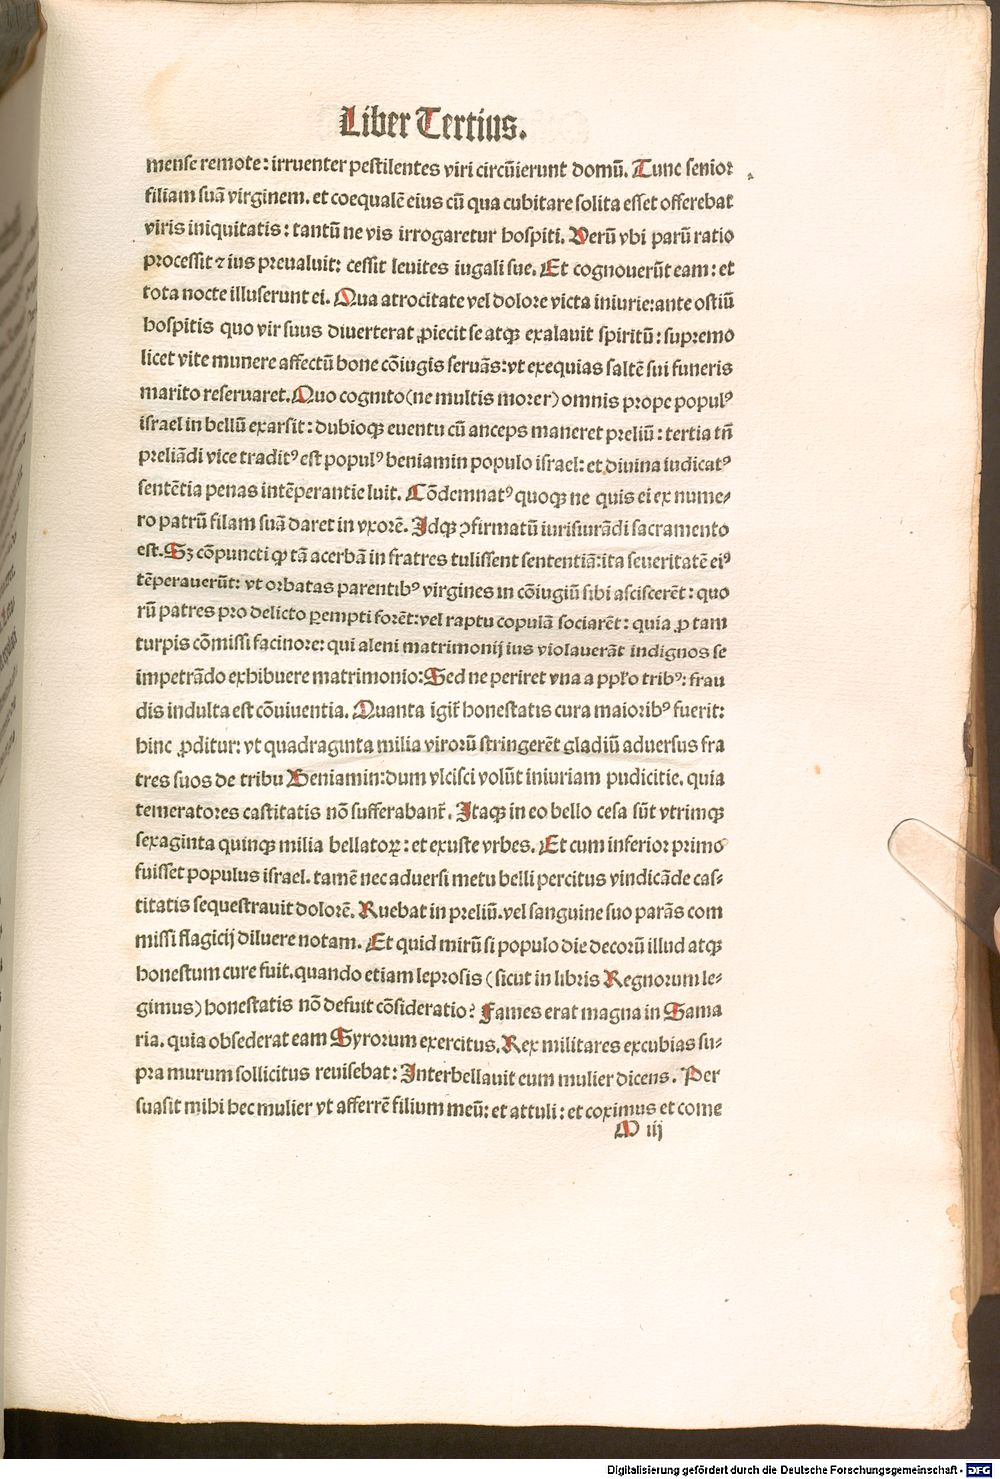 Liber Tertius.
mense remote: irruenter pestilentes viri circūierunt domū. Tunc senior
filiam suā virginem. et coequalē eius cū qua cubitare solita esset offerebat
viris iniquitatis: tantū ne vis irrogaretur hospiti. Verū vbi parū ratio
processit ⁊ ius preualuit: cessit leuites iugali sue. Et cognouerūt eam: et
tota nocte illuserunt ei. Qua atrocitate vel dolore victa iniurie: ante ostiū
hospitis quo vir suus diuerterat ꝓiecit se atqꝫ exalauit spiritū: supremo
licet vite munere affectū bone cōiugis seruās: vt exequias saltē sui funeris
marito reseruaret. Quo cognito (ne multis morer) omnis prope populꝰ
israel in bellū exarsit: dubioqꝫ euentu cū anceps maneret preliū: tertia tn̄
preliādi vice traditꝰ est populꝰ beniamin populo israel: et diuina iudicatꝰ
sentētia penas intēperantie luit. Cōdemnatꝰ quoqꝫ ne quis ei ex nume-
ro patrū filam suā daret in vxorē. Idqꝫ ꝯfirmatū iurisiurādi sacramento
est. Sꝫ cōpuncti ꝙ tā acerbā in fratres tulissent sententiā: ita seueritatē eiꝰ
tēperauerūt: vt orbatas parentibꝰ virgines in cōiugiū sibi ascisceret̄: quo
rū patres pro delicto ꝑempti forēt: vel raptu copulā sociarēt: quia ꝓ tam
turpis cōmissi facinore: qui alieni matrimonij ius violauerāt indignos se
impetrādo exhibuere matrimonio: Sed ne periret vna a ppl̄o tribꝰ: frau
dis indulta est cōuiuentia. Quanta igit̄ honestatis cura maioribꝰ fuerit:
hinc ꝓditur: vt quadraginta milia virorū stringerēt gladiū aduersus fra
tres suos de tribu Beniamin: dum vlcisci volūt iniuriam pudicitie. quia
temeratores castitatis nō sufferabant̄. Itaqꝫ in eo bello cesa sūt vtrimqꝫ
sexaginta quinqꝫ milia bellatoꝝ: et exuste vrbes. Et cum inferior primo
fuisset populus israel. tamē nec aduersi metu belli percitus vindicāde cas-
titatis sequestrauit dolorē. Ruebat in preliū. vel sanguine suo parās com
missi flagicij diluere notam. Et quid mirū si populo die decorū illud atqꝫ
honestum cure fuit. quando etiam leprosis (sicut in libris Regnorum le-
gimus) honestatis nō defuit cōsideratio? Fames erat magna in Sama
ria. quia obsederat eam Syrorum exercitus. Rex militares excubias su-
pra murum sollicitus reuisebat: Interbellauit eum mulier dicens. Per
suasit mihi hec mulier vt afferrē filium meū: et attuli: et coximus et come
M iij
Digitalisierung gefördert durch die Deutsche Forschungsgemeinschaft - DFG